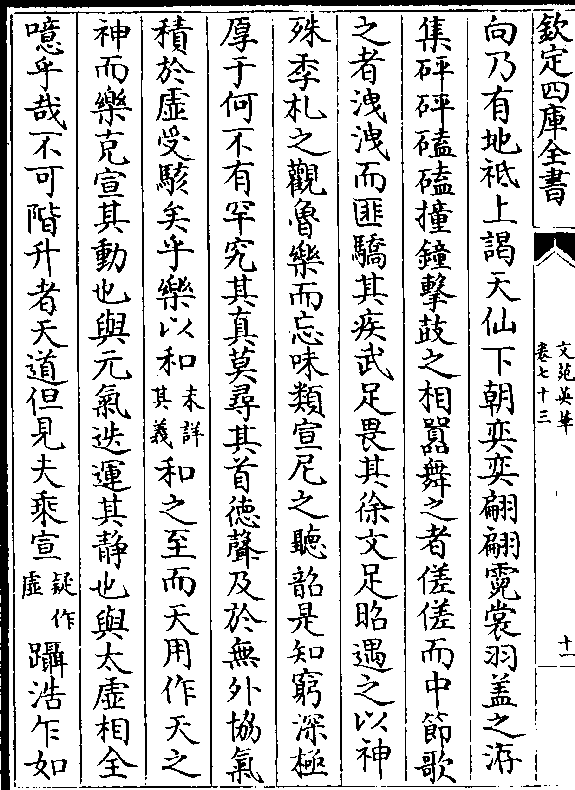 欽定四庫全書
文苑英華
卷七十三
十一
向乃有地祗上謁天仙下朝奕奕翩翩霓裳羽盖之㳺
集砰砰磕磕撞鐘擊鼓之相嚻舞之者傞傞而中節歌
之者洩洩而匪驕其疾武足畏其徐文足昭遇之以神
殊季札之觀魯樂而忘味類宣尼之聽韶是知窮深極
厚于何不有罕究其真莫尋其首徳聲及於無外協氣
積於虛受駭矣乎樂以和未詳其義和之至而天用作天之
神而樂克宣其動也與元氣迭運其静也與太虛相全
噫乎哉不可階升者天道但見夫乘宣疑作虛躡浩乍如